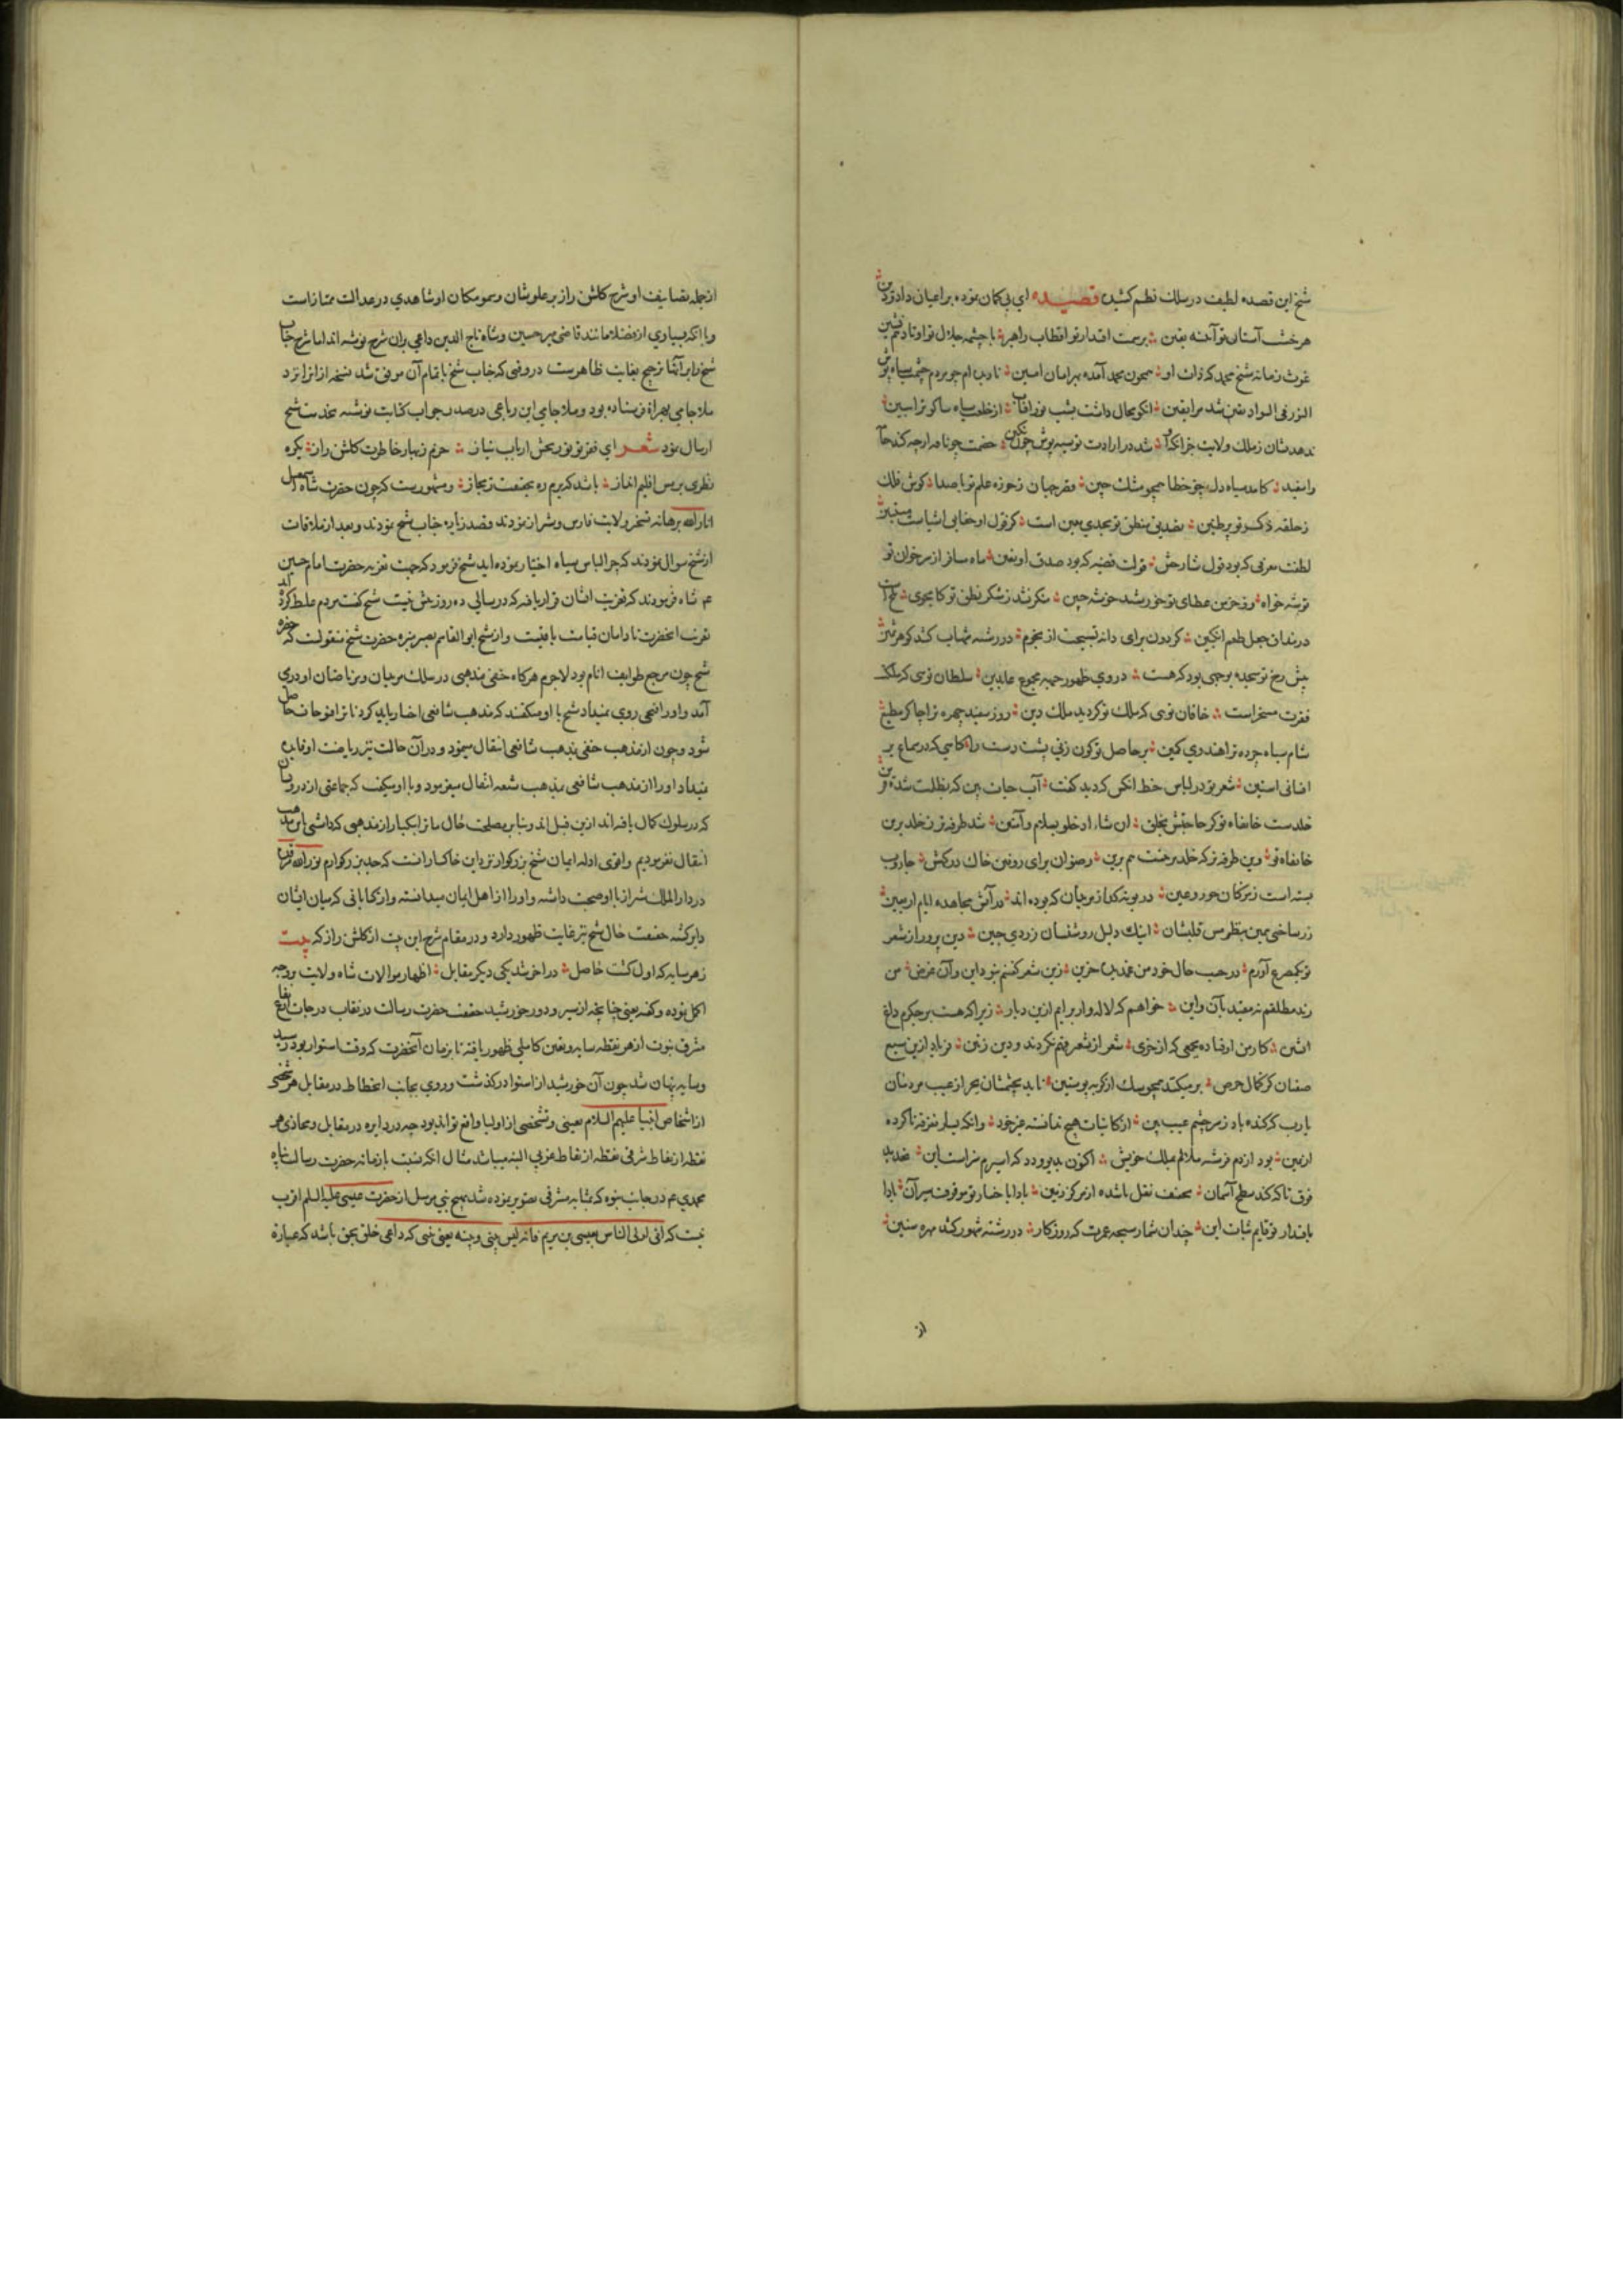 شیخ این قصیده لطیف در سلک نظم کشیده قصیده ای بی کمان نموده بر اعیان داد و دین
هر خشت آستان تو آئینه یقین برسمت اقتدار تو اقطاب راهبر با چشمه جلال تو اوتاد
غوث زمانه شیخ محمد که ذات او همچون محمد آمده بر امان امین
النور فی السواد شد مرا یقین انکو بحال داشت بشب نور آفتاب از خلعت سیاه
ندهد نشان ز ملک ولایت جز آنکه شد در ارادت تو سیه پوش چون نکین
را سفید کامد سیاه دل چو خطا همچو مشک چین فقر جهان ز حوزه علم تو با صدا کوش فلک
ز حلقه ذکر تو پر طنین تصدیق منطق تو بحدی مبین است کز قول او خفایی اشیاست مستبین
لطفت معرفی که بود قول شارحش قولت قضیه که بود صدق او یقین ماه مسافر از سر خوان تو
توشه خواه وز خرمن عطای تو خورشید خوشه چین منکر نشد ز شکر نطق تو کامجوی
در نداق جعل طعم انکبین کردون برای دانه تسبیحت از نجوم در رشته شهاب کشد کوهر
پیش رخ تو سجده بوجهی بود که هست در روی ظهور جبهه مجموع عابدین سلطان تویی که ملک
فقرت مسخر است خاقان تویی که ملک تو کردید ملک دین روز سفید چهره ترا چاکر مطیع
شام سیاه چرده ترا هندوی کمین بر حاصل تو کون زنی پشت دست را کاهی که در سماع بر
افشانی استین شعر تو در لباس خط انکس که دید گفت آب حیات بین که بظلمت شده
خلدست خانقاه تو کز حاجبش بخلق ان شاء ادخلوا بسلام و آمنین شد طرفه تر ز خلد برین
خانقاه تو وین طرفه تر که خلد برینست هم برین رضوان برای روفتن خاک درکهش جاروب
بسته است ز مژکان حور و عین در بوته کداز مریدان که بوده اند در آتش مجاهده ایام اربعین
زر ساختی بمین نظر مس قلبشان اینک دلیل روشنشان زردی جبین
تو یکمصرع آورم در حسب حال خود من غمدیده حزین زین شعر کفتنم نبود این و آن غرض من
رند مطلقم نه مقید بآن و این خواهم که لاله وار برایم ازین دیار زیرا که هست بر جکرم داغ
آتشین کار من اوفتاده بجمعی که از خری شعر از شعیر فهم نکردند و دین ز تین فریاد ازین سبع
صفتان کز کمال حرص بر میکنند همچو سک از کربه پوستین ناید بچشمشان بجز از عیب مردمان
یا رب که کنده باد ز سر چشم عیب بین از کاینات هیچ ندانسته غیر خود وانکه یسار تفرقه ناکرده
از یمین بود از دم فرشته ملالم بملک خویش اکنون به بین و دد که اسیرم سزاست این
فوق تا که کند سطح آسمان تحتت نقل باشد از مرکز زمین
باقتدار تو قایم ثبات این چندان شمار سبحه عمرت که روزکار در رشته شهور کشد مهره سنین
از
از جمله تصانیف او شرح کلشن راز بر علو شان و سمو مکان او شاهدی در عدالت ممتاز است
و با آنکه بسیاری از فضلا مانند قاضی میر حسین و شاه تاج الدین داعی بران شرح نوشته اند اما شرح جناب
شیخ را بر آنها ترجیح بغایت ظاهرست در وقتی که جناب شیخ باتمام آن موفق شد نسخه از انرا نزد
ملا جامی بهراة فرستاده بود و ملا جامی این رباعی در صدر جواب کتابت نوشته بخدمت شیخ
ارسال نمود شعر ای فقر تو نور بخش ارباب نیاز خرم ز بهار خاطرت کلشن راز یکره
نظری بر مس قلبم انداز باشد که برم ره بحقیقت ز مجاز و مشهورست که چون حضرت شاه اسمعیل
انار الله برهانه تسخیر ولایت فارس و شیراز نمودند قصد زیارت جناب شیخ نمودند و بعد از ملاقات
از شیخ سوال نمودند که چرا لباس سیاه اختیار نموده اید شیخ فرمود که جهت تعزیه حضرت امام حسین
ع شاه فرمودند که تعزیت ایشان قرار یافته که در سالی ده روز بیش نیست شیخ گفت مردم غلط کرده اند
تعزیت انحضرت تا دامان قیامت باقیست و از شیخ ابو القاسم حضرت شیخ منقولست که حضرت
شیخ چون مرجع طوایف انام بود لاجرم هرکاه حنفی مذهبی در سلک مریدان و مرتاضان او دری
آمد و او را فتحی روی نمیداد شیخ با او میکفتند که مذهب شافعی اختیار باید کرد تا ترا فتوحات حاصل
شود و چون از مذهب حنفی بمذهب شافعی انتقال مینمود و در آن حالت نیز ریاضت او فایده
نمیداد او را از مذهب شافعی بمذهب شیعه انتقال میفرمود و با او میکفت که جماعتی از درویشان
که در سلوک کمال یافته اند ازین قبیل اند و بنابر مصلحت حال ما ترا یکبار از مذهبی که داشتی باین مذهب
انتقال نفرمودیم و اقوی ادله ایمان شیخ بزرکوار نزد این خاکسار انست که جد بزرکوارم نور الله مرقده
در دار الملک شیراز با او صحبت داشته و او را از اهل ایمان میدانسته و از کتاباتی که میان ایشان
دایر کشته حقیقت حال شیخ نیز غایت ظهور دارد و در مقام شرح این بیت از کلشن راز که بیت
ز هر سایه که اول کشت حاصل در اخر شد یکی دیکر مقابل اظهار موالات شاه ولایت بوجه
اکمل نموده و گفته یعنی چنانچه از سیر و دور خورشید حقیقت حضرت رسالت در نقاب درجات ارتفاع
مشرق نبوت از هر نقطه سایه و تعین کاملی ظهور یافته تا بزمان آنحضرت که وقت استوا بود رسید
و سایه پنهان شد چون آن خورشید از استوا درکذشت و روی بجانب انحطاط در مقابل هر شخصی
از اشخاص انبیا علیهم السلام تعینی و تشخصی از اولیا واقع تواند بود چه در دایره در مقابل و محاذی هر
نقطه از نقاط شرقی نقطه از نقاط غربی البته میباشد مثال انکه نسبت با زمانه حضرت رسالت پناه
محمدی ع در جانب نبوه که بمثابه مشرقی تصویر نموده شد هیچ نبی مرسل از حضرت عیسی علیه السلم اقرب
نیست که انی اولی الناس بعیسی بن مریم فانه لیس بینی و بینه نبی یعنی نبی که داعی خلق بحق باشد که عبارة